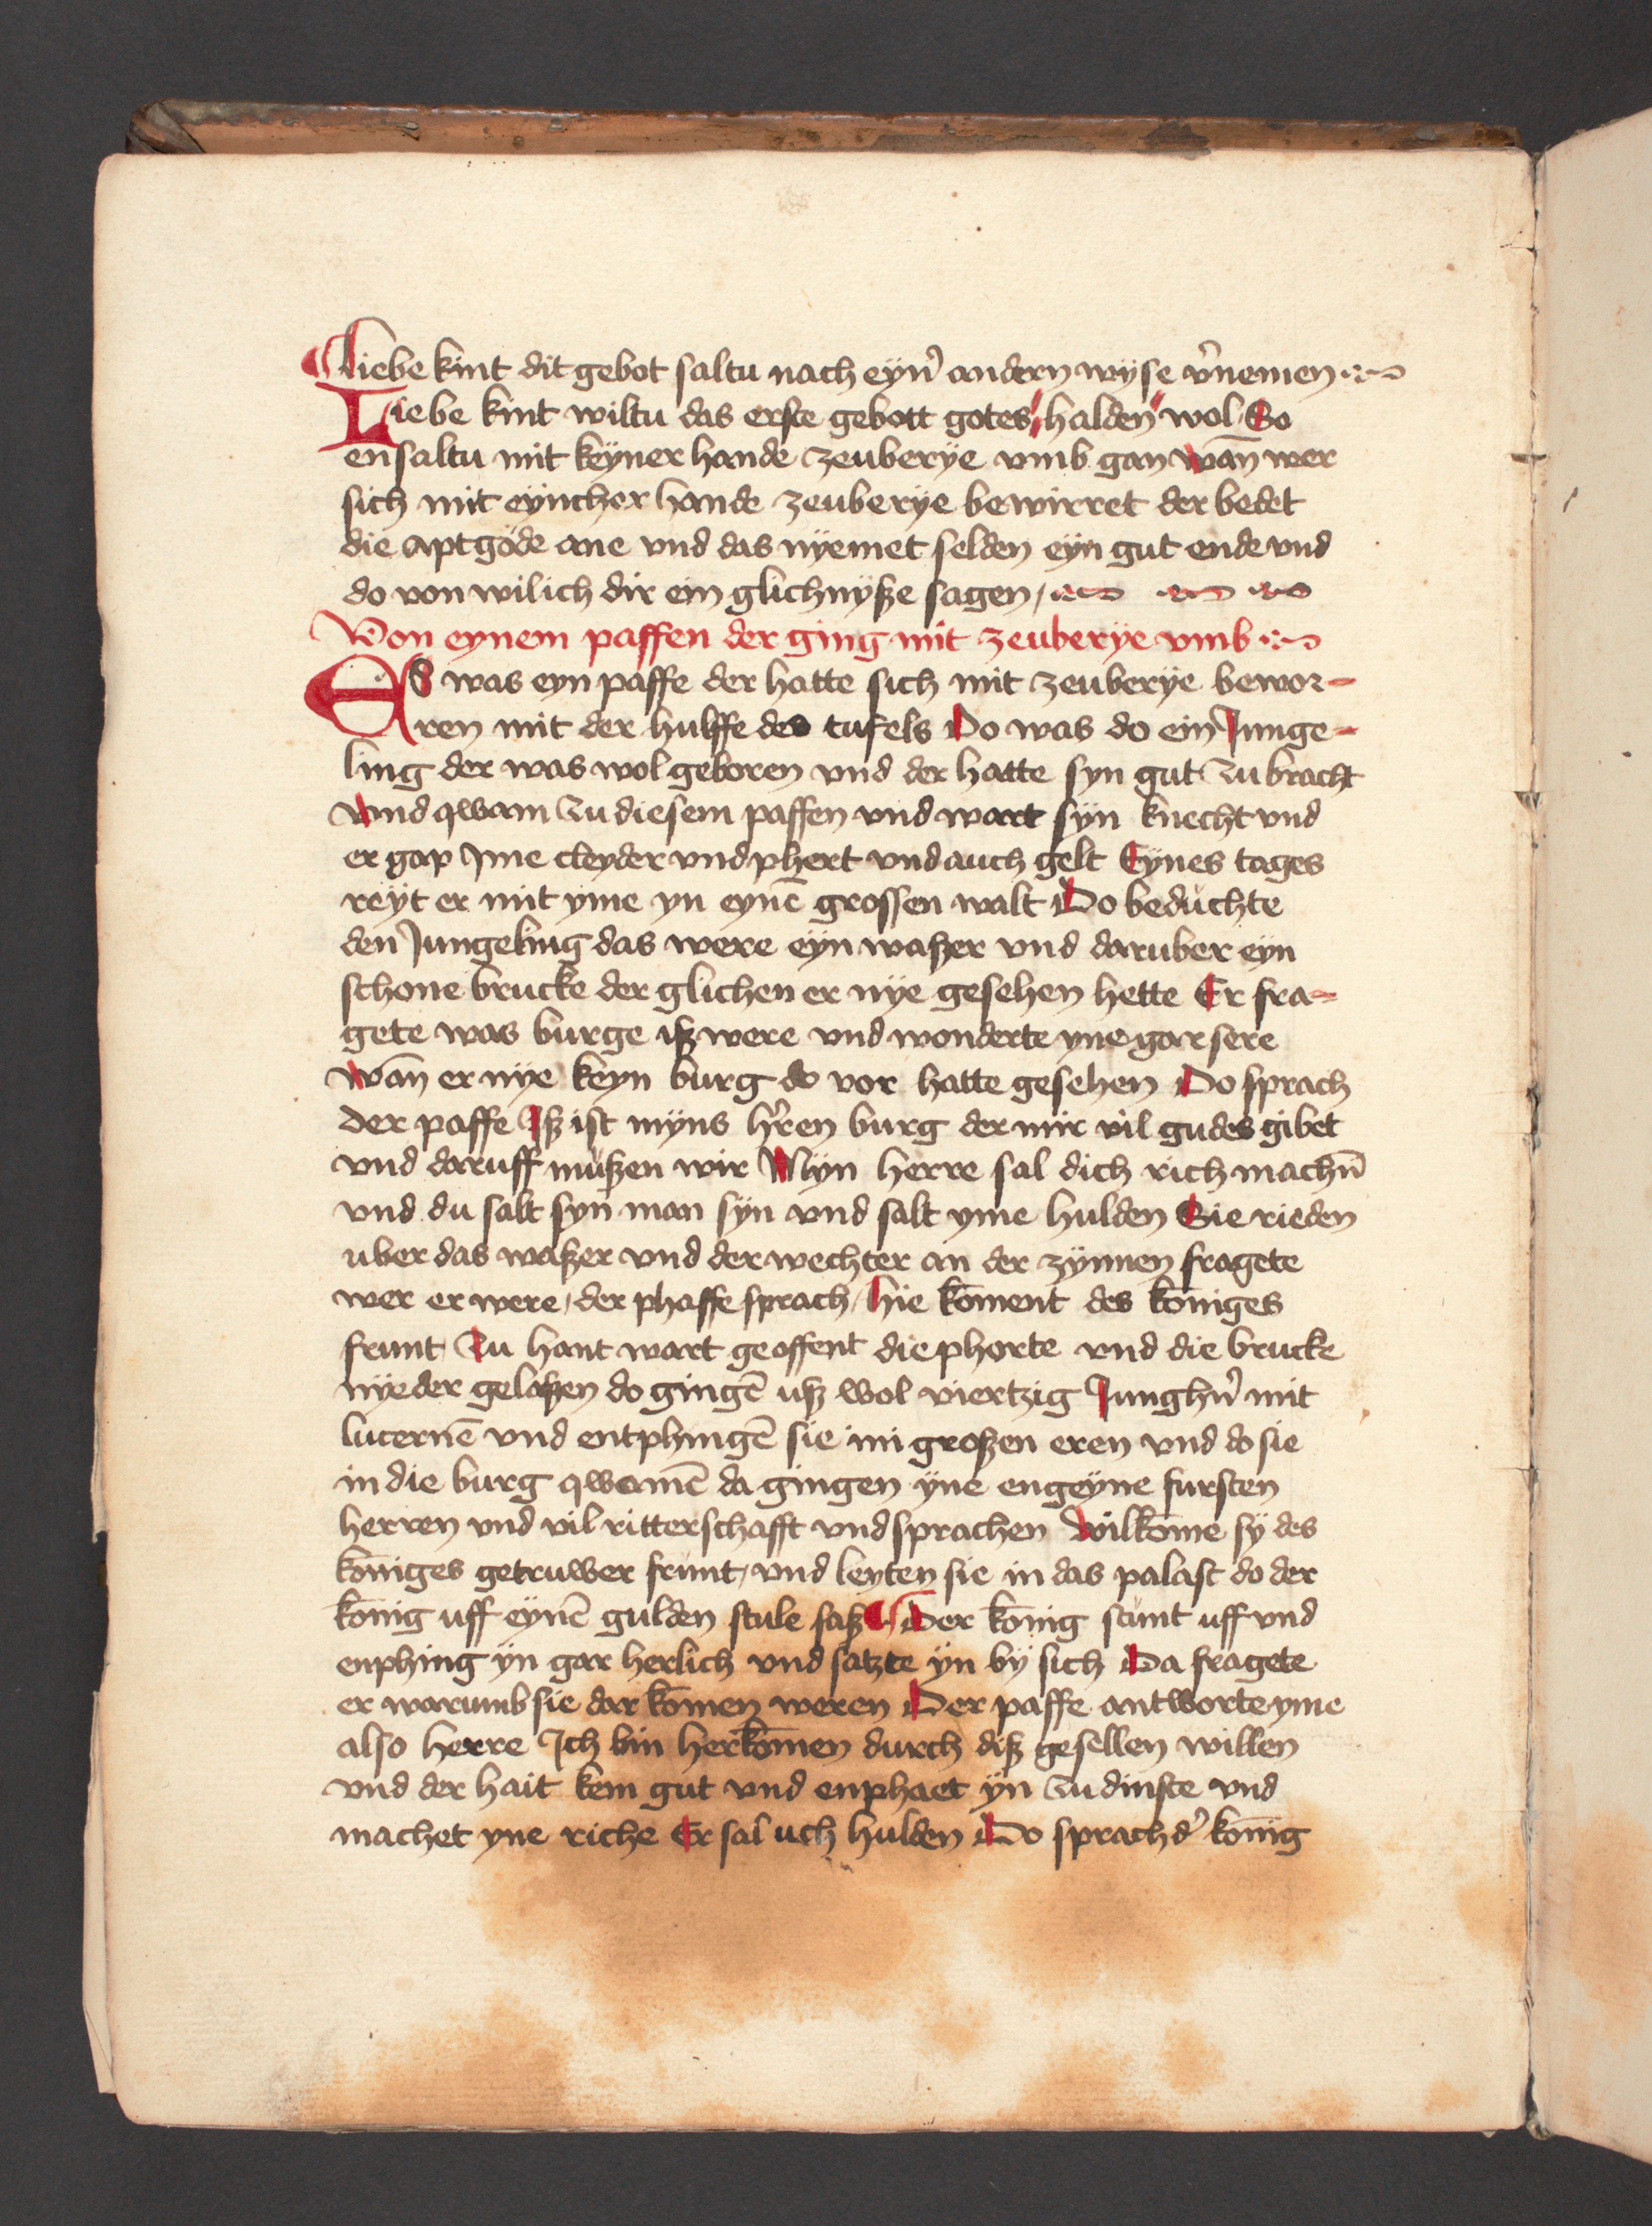 Liebe kint dit gebot saltu nach eyn̉ andern wyse v̉nemen
Liebe kint wiltu das erste gebott gotes halden wol So
ensaltu mit keyner hande zeuberÿe vmb gan wān wer
sich mit eyncher hande zeuberÿe bewirret der bedet
die aptgöde ane vnd das nÿemet selden eÿn gut ende vnd
do von wilich dir ein glichnÿße sagen
Von eynem paffen der ging mit zeuberÿe vmb
ES was eyn paffe der hatte sich mit zeuberÿe bewor-
ren mit der hulffe des tufels Do was do ein Junge-
ling der was wol geboren vnd der hatte syn gut zu bracht
vnd qwam zu diesem paffen vnd wart sÿn knecht vnd
er gap Jme cleyder vnd phert vnd auch gelt Eynes tages
reÿt er mit yme yn eynē grossen walt Do beduchte
den Jungeling das were eÿn waßer vnd daruber eÿn
schone brucke der glichen er nÿe gesehen hette Er fra-
gete was burge iß were vnd wonderte yne gar sere
wān er nÿe keyn burg do vor hatte gesehen Do sprach
der paffe Jß ist mÿns hr̉en burg der mir vil gudes gibet
vnd daruff mußen wir Mÿn herre sal dich rich machn̄
vnd du salt syn man sÿn vnd salt yme hulden Sie rieden
uber das waßer vnd der wechter an der zÿnnen fragete
wer er were / der phaffe sprach / hie kōment des kōniges
frunt Zu hant wart geoffent die phorte vnd die brucke
nÿeder gelaßen do gingē uß wol viertzig Junghn̉ mit
lucernē vnd entphingē sie mi großen eren vnd do sie
in die burg qwamē da gingen ÿne engeÿne fursten
herren vnd vil ritterschafft vnd sprachen wilkōme sÿ des
kōniges getruwer frunt / vnd leyten sie in das palast do der
kōnig uff eynē gulden stule saß Der kōnig stunt uff vnd
enphing ÿn gar herlich vnd satzte ÿn bÿ sich Da fragete
er warumb sie dar kōmen weren Der paffe antworte yme
also herre Jch bin herkōmen durch diß gesellen willen
vnd der hait kein gut vnd enphaet ÿn zu dinste vnd
machet yne riche Er sal uch hulden Do sprach d̉ kōnig